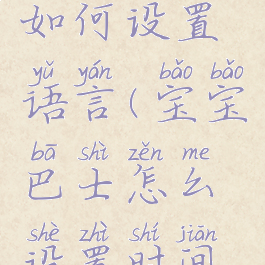 如何设置
yǔ yán bǎo bǎo
语言(宝宝
bā shì zěn me
巴士怎么
shè zhì shí jiān
设置时间